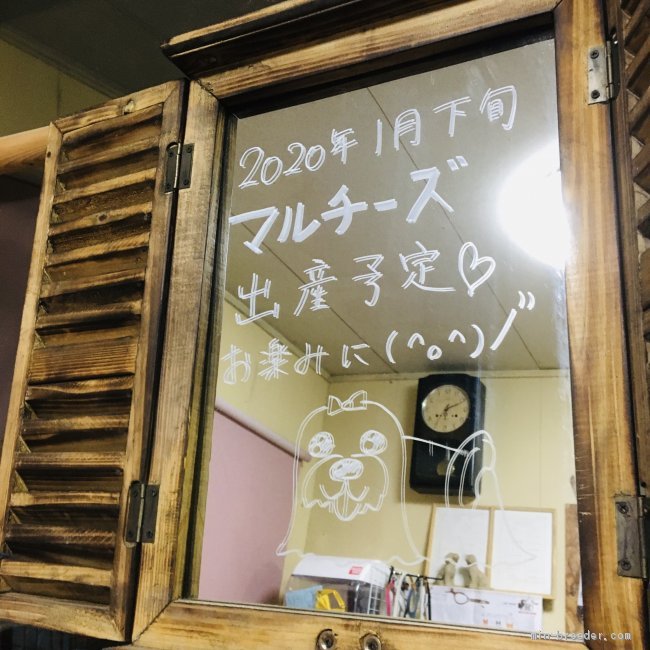 2020年1月下旬
マルチーズ
出産予定♡
お楽みに(^o^)/
min-breeder.com